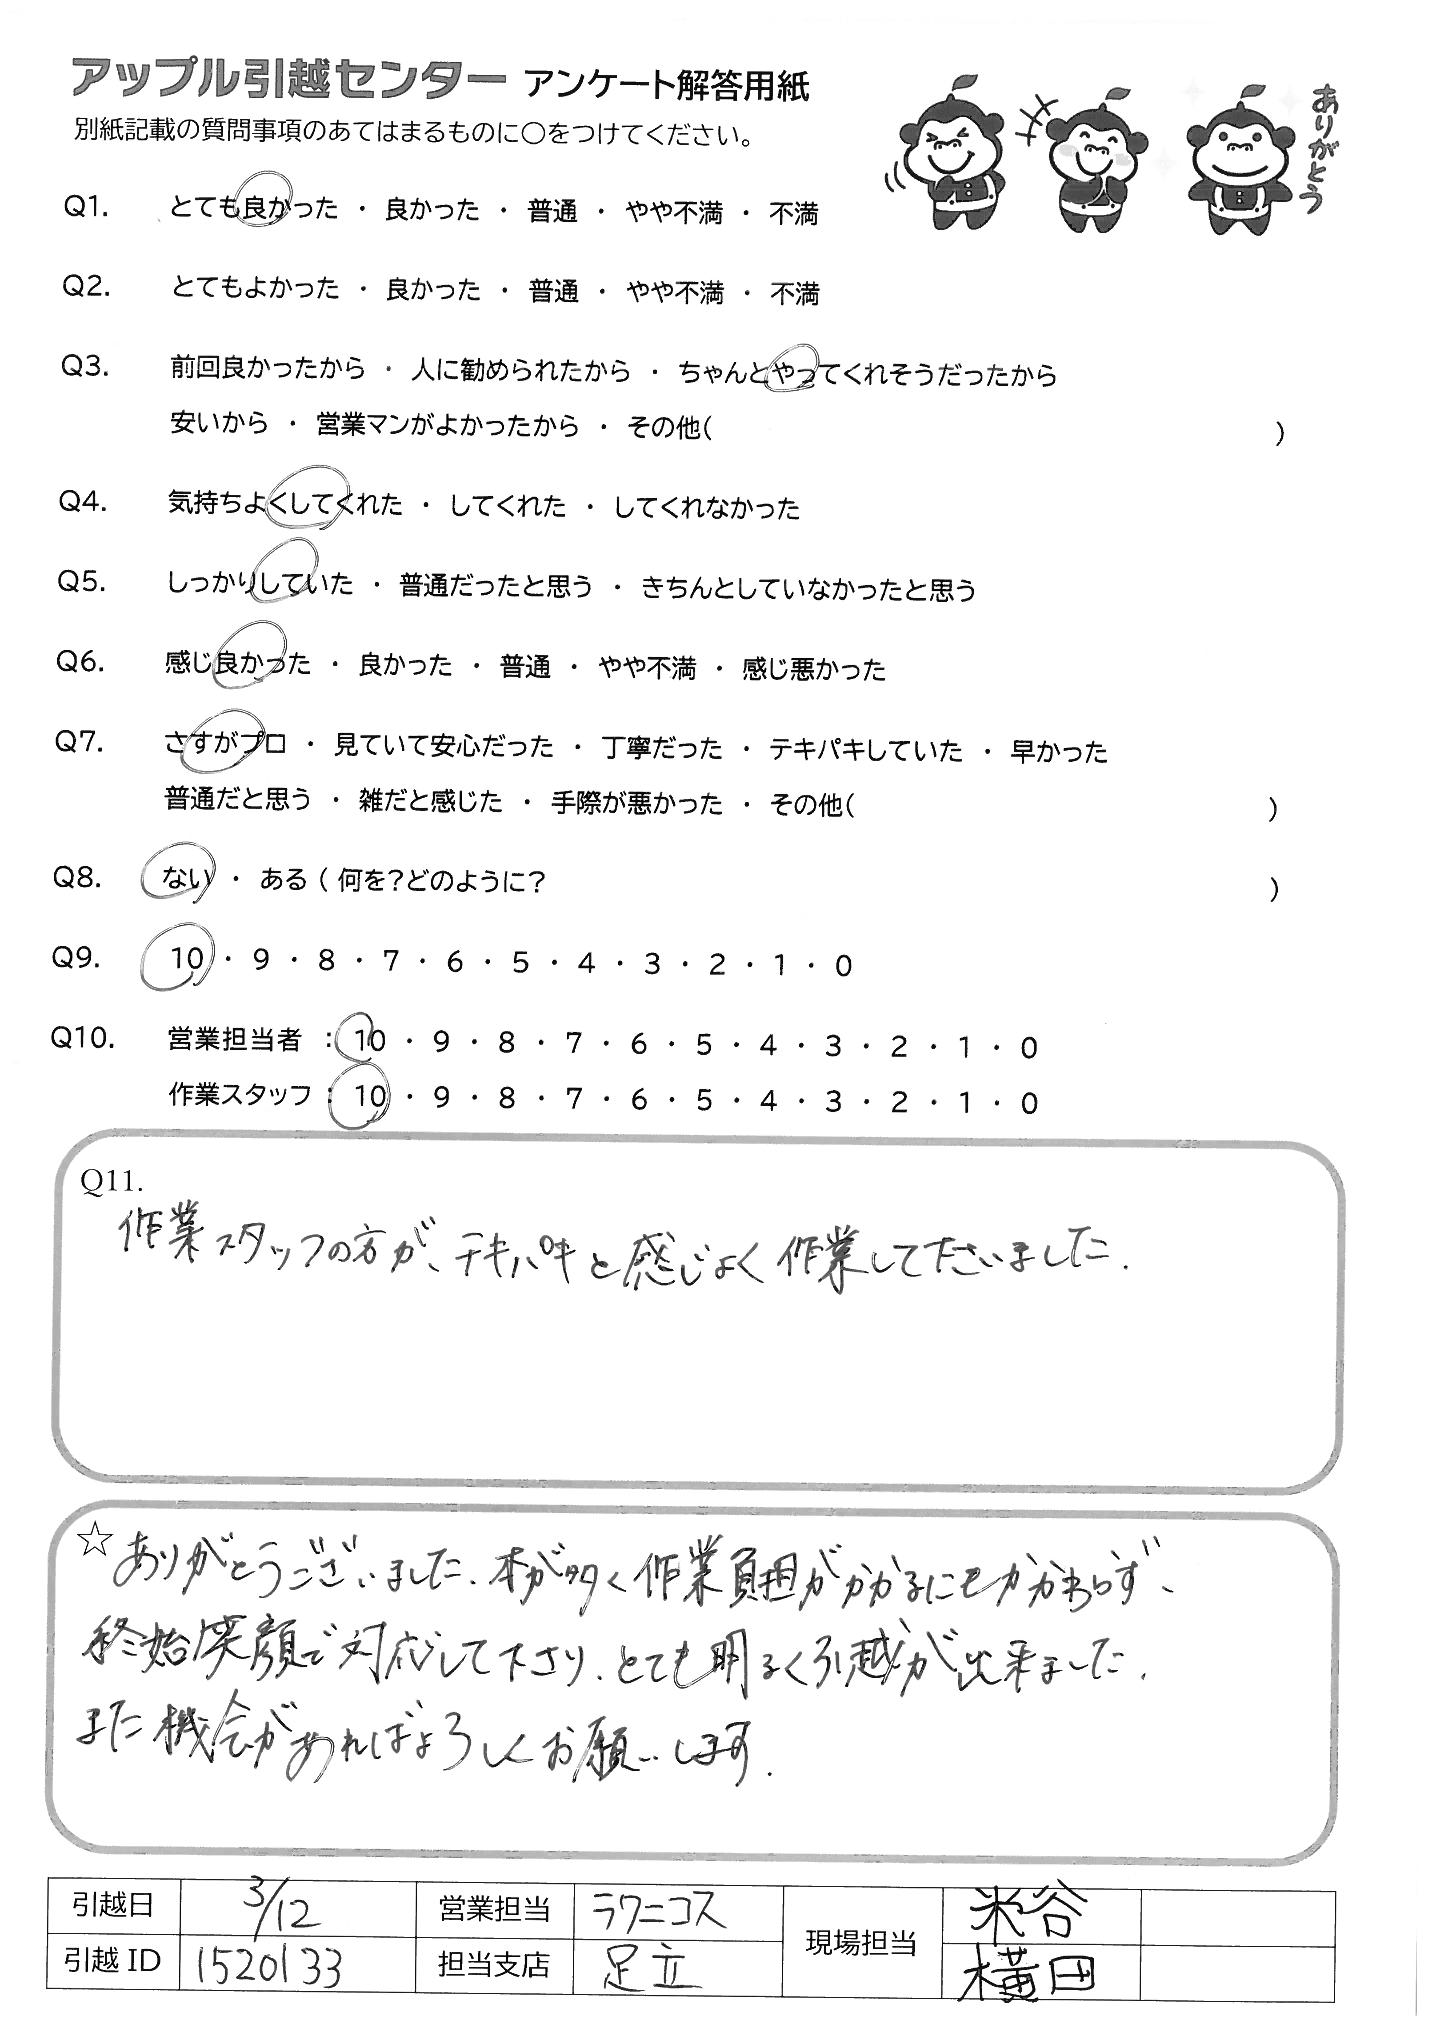 アップル引越センター アンケート解答用紙
別紙記載の質問事項のあてはまるものに○をつけてください。
ありがとう
Q1. とても良かった ・ 良かった ・ 普通 ・ やや不満 ・ 不満
Q2. とてもよかった ・ 良かった ・ 普通 ・ やや不満 ・ 不満
Q3. 前回良かったから ・ 人に勧められたから ・ ちゃんとやってくれそうだったから
安いから ・ 営業マンがよかったから ・ その他( )
Q4. 気持ちよくしてくれた ・ してくれた ・ してくれなかった
Q5. しっかりしていた ・ 普通だったと思う ・ きちんとしていなかったと思う
Q6. 感じ良かった ・ 良かった ・ 普通 ・ やや不満 ・ 感じ悪かった
Q7. さすがプロ ・ 見ていて安心だった ・ 丁寧だった ・ テキパキしていた ・ 早かった
普通だと思う ・ 雑だと感じた ・ 手際が悪かった ・ その他( )
Q8. ない ・ ある ( 何を？どのように？ )
Q9. 10 ・ 9 ・ 8 ・ 7 ・ 6 ・ 5 ・ 4 ・ 3 ・ 2 ・ 1 ・ 0
Q10. 営業担当者 : 10 ・ 9 ・ 8 ・ 7 ・ 6 ・ 5 ・ 4 ・ 3 ・ 2 ・ 1 ・ 0
作業スタッフ : 10 ・ 9 ・ 8 ・ 7 ・ 6 ・ 5 ・ 4 ・ 3 ・ 2 ・ 1 ・ 0
Q11.
作業スタッフの方が、テキパキと感じよく作業して下さいました.
☆ ありがとうございました. 本が多く作業負担がかかるにもかかわらず、
終始笑顔で対応して下さり、とても明るく引越が出来ました.
また機会があればよろしくお願いします.
引越日 3/12 営業担当 ラクニコス 現場担当 米谷
引越 ID 1520133 担当支店 足立 横田